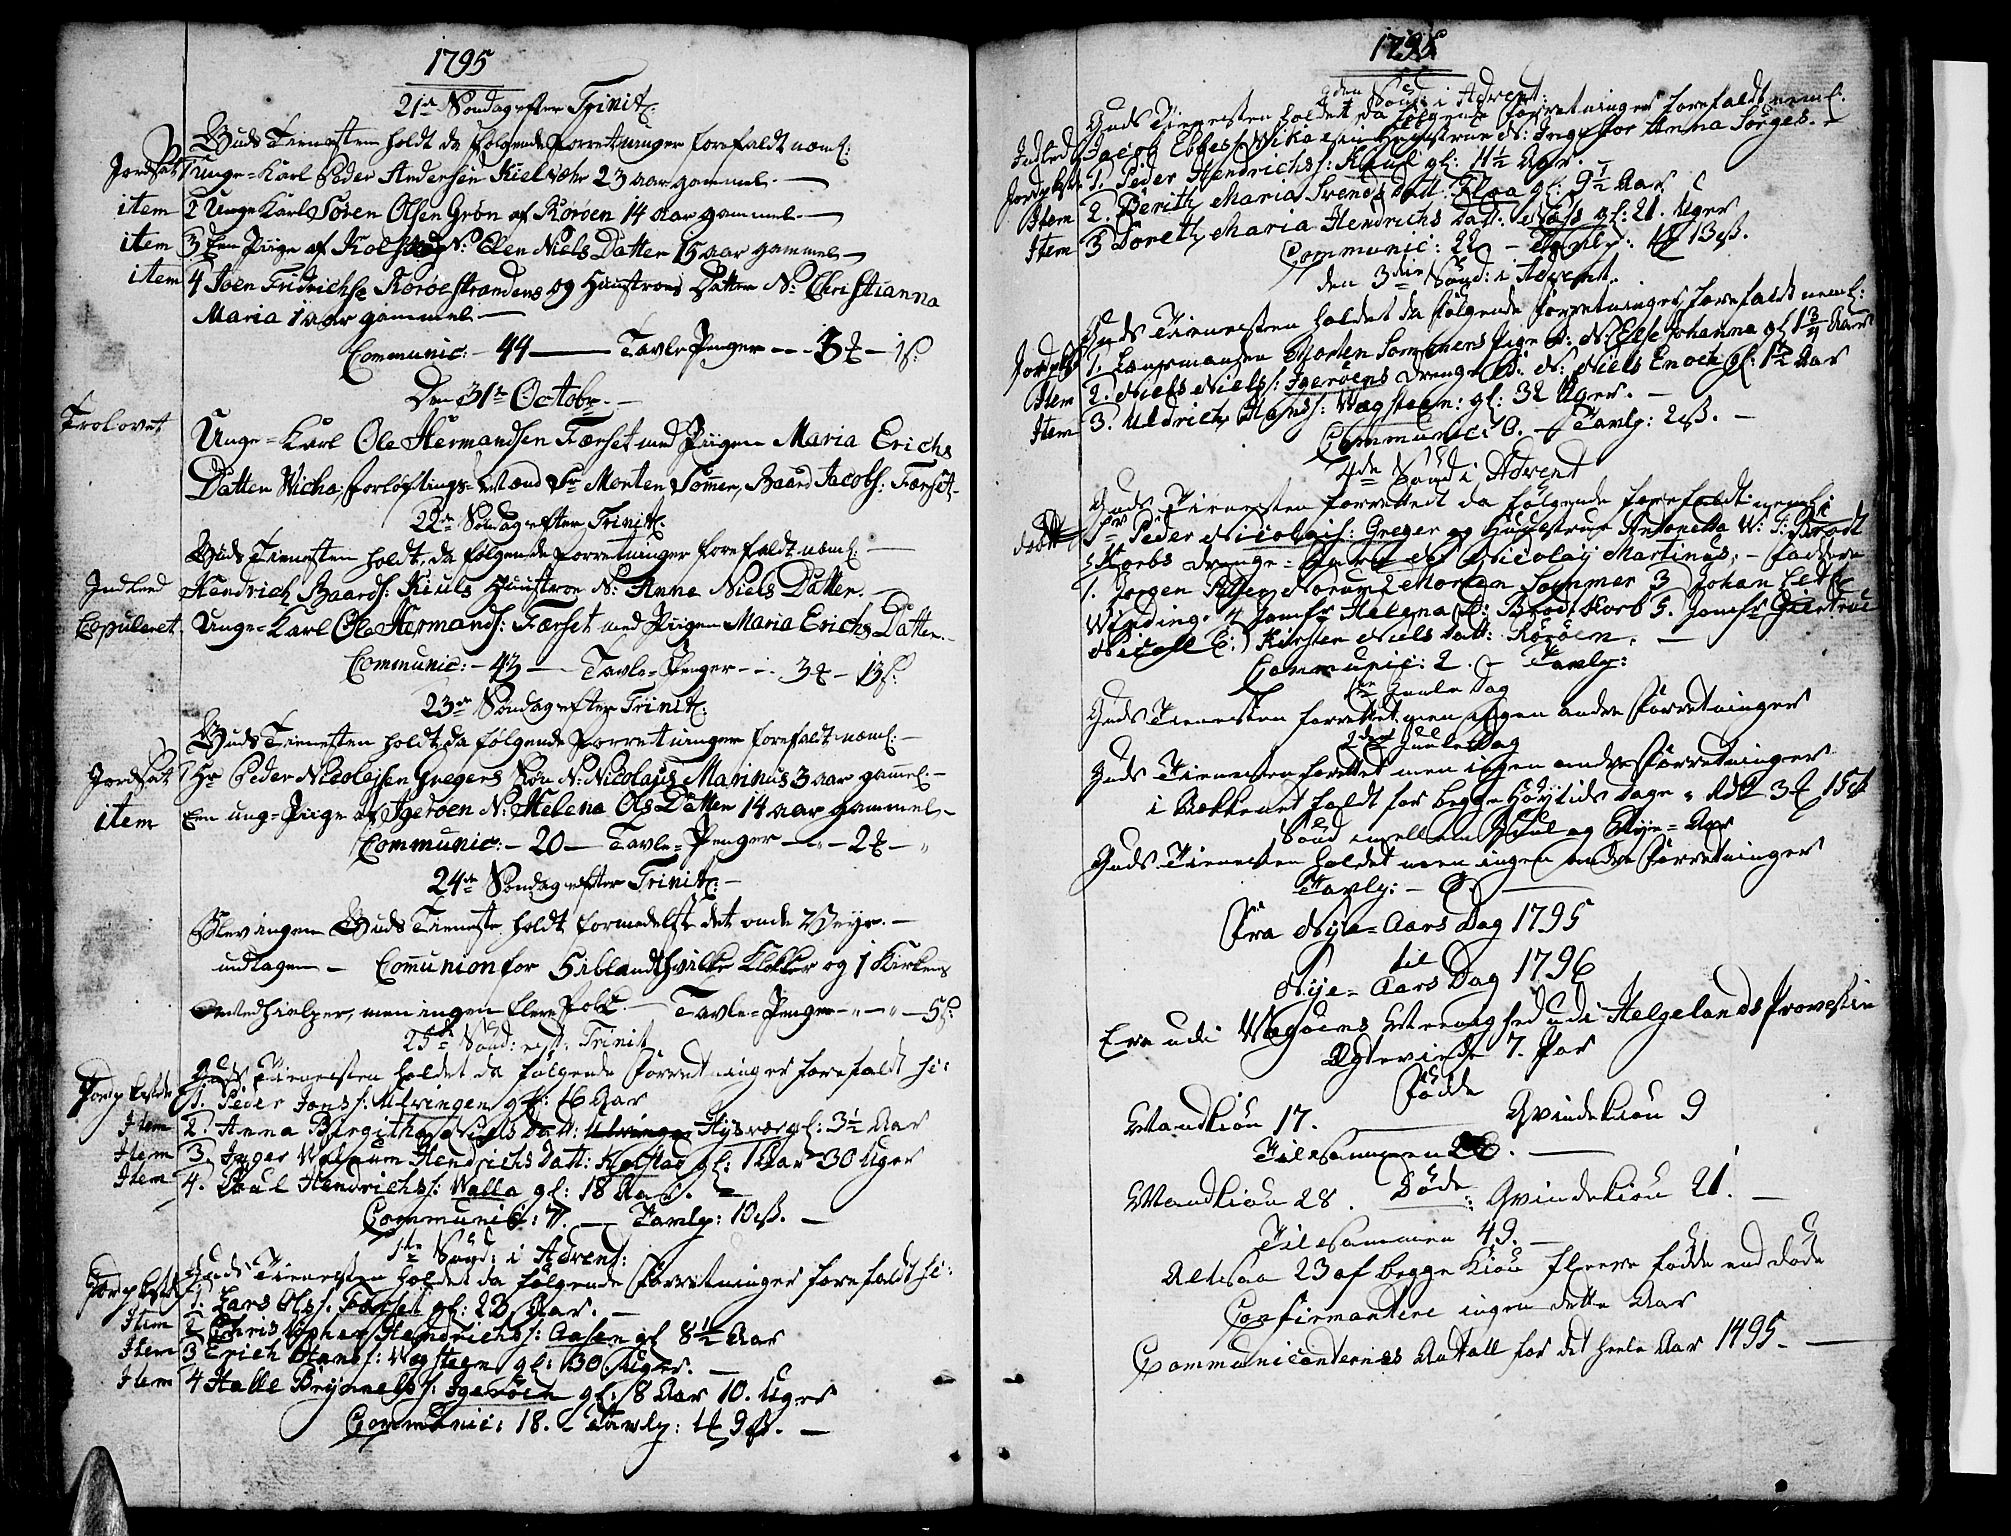 1795
21de Søndag efter Trinit:
Guds Tienesten holdt da følgende forretninger forefaldt neml:
Jordsat 1 Unge-Karl Peder Andersen Kielvæhr 23 aar gammel. —
item 2 Unge Karl Søren Olsen Grøn af Korøen 14 aar gammel. —
item 3 Een Piige af Kolstad N: Elen Niels Datter 15 aar gammel —
item 4 Joen Fridrichse Korøestrandens og Huustroes Datter N: Christianna
Maria 1 aar gammel. —
Communic: - 44 — Tavle Penger - - - 3 - 1 s:
Den 31te Octobr: -
Trolovet Unge-Karl Ole Hermandsen Færset med Piigen Maria Erichs
Datter Wicha, forløftings-Mænd Sr Morten Sommer, Baard Jacobs: Færset -
22de Søndag efter Trinit:
Guds Tienesten holdt, da følgende forretninger forefaldt neml: —
Indleed Hendrich Baards: Kiuls Huustroe N: Anne Niels Datter. —
Copuleret Unge-Karl Ole Hermands: Færset med Piigen Maria Erichs Datter -
Communic: - 43 — Tavle-Penger - - - 3 - 13 s:
23de Søndag efter Trinit:
Guds Tienesten holdt, da følgende forretninger forefaldt neml: -
Jordsat 1 Hr Peder Nicolajsen Gregers Søn N: Nicolajus Marinus 3 aar gamel. -
item Een ung-Piige af Igerøen N: Helena Ols Datter 14 aar gammel -
Communic: - 20 — Tavle-Penger - „ - 2 - „
24de Søndag efter Trinit: -
Blev ingen Guds Tieneste holdt formedelst det onde Veyr. -
undtagen - Communion for 5 iblandt hvilke Klokker og 1 Kirkens
Medhielper, men ingen flere Folk. - Tavle-Penger - „ - „ - 5 s:
25de Sønd: eft: Trinit
Guds Tienesten holdet da følgende Forretninger forefaldt si:
Jordp kastede 1. Peder Jons: Ulvingen gl: 16 Aar
Item 2. Anna Birgitha Niels Datt: Ulvingen Hysvær gl: 3½ Aar
Item 3 Inger Hendrichs Datt: Kolstad gl: 1 Aar 30 Uger
Item 4. Poul Hendrichs: Walla gl: 18 Aar. =
Communic: 7. — Tavlp: 10 s. —
1ste Sønd: i Advent:
Guds Tienesten holdet da følgende Forretninger forefaldt si:
Jordp kast: 1. Lars Ols: Færset gl: 23 Aar. —
Item 2 Christopher Hendrichs: Aasen gl 8½ Aar
Item 3 Erich Hans: Wægsteen gl: 30 Uger. —
Item 4 Halle Brynnels: Igerøen gl: 8 Aar 10. Uger
Communic: 18. - Tavlp: 9 s. —
1795
2den Sønd: i Advent:
Guds Tienesten holdet da følgende Forretninger forefaldt neml:
Indled Jacob Ebbes: Wikaes Huustrue N: Ingebor Anna Sørges. -
Jordp kast: 1. Peder Hendrichs: Kiuul gl: 11½ Aar. -
Item 2. Berith Maria Svends Datt: Floa gl: 9½ Aar
Item 3 Doreth Maria Hendrichs Datt: Næss gl: 21. Uger
Communic: 22 - Tavlp: 13 s.
den 3die Sønd: i Advent.
Guds Tienesten holdet da følgende Forretninger forefaldt neml:
Jordp k: 1. Langsmanden Morten Sommers Pige B: N: Else Johanna gl 1¾ Aar
Item 2. Niels Niels: Igerøens Drenge B: N: Niels Enoch gl: 1½ Aar
Item 3. Uldrich Hans: Wægsteen: gl: 32 Uger. -
Communic: 0. - Tavlp: 2 s. -
4de Sønd i Advent
Guds Tienesten forrettedt da følgende forefaldt neml:
døbt Sr Peder Nicolais: Greger og Huustrue Antonetta W: S: Brodt
Korbs Drenge-Barn N: Nicolay Martinus; - Faddere
1. Jørgen Forum 2 Morten Sommer 3 Johan
Winding. 4 Jomfr Helena B: Brodtkorb 5. Jomfr Giertrue
Kirsten Niels Datt: Korøen. —
Communic: 2. - Tavlp:
1ste Juule Dag
Guds Tienesten forrettet men ingen andre Forretninger
2den Juule Dag
Guds Tienesten forrettet men ingen andre Forretninger
i Bekkenet faldt for begge Høytids Dage „ Rdl 3 15 s
Sønd imellem Juul og Nye-Aar
Guds Tienesten holdet men ingen andre Forretninger
Tavlp: - 0. —
Fra Nye-Aars Dag 1795
til
Nye-Aars Dag 1796
Ere udi Wægøens Menighed udi Helgelands Provestie
Egteviede 7. Par
Fødde
Mandkiøn 17. — Qvindekiøn 9
Tilesammen 26. —
Døde
Mandkiøn 28. : Qvindekiøn 21. —
Tilesammen 49. —
Altsaa 23 af begge Kiøn fleere fødde end døde
Confirmantere ingen dette Aar
Communicanternes Antall for det heele Aar 1495. —